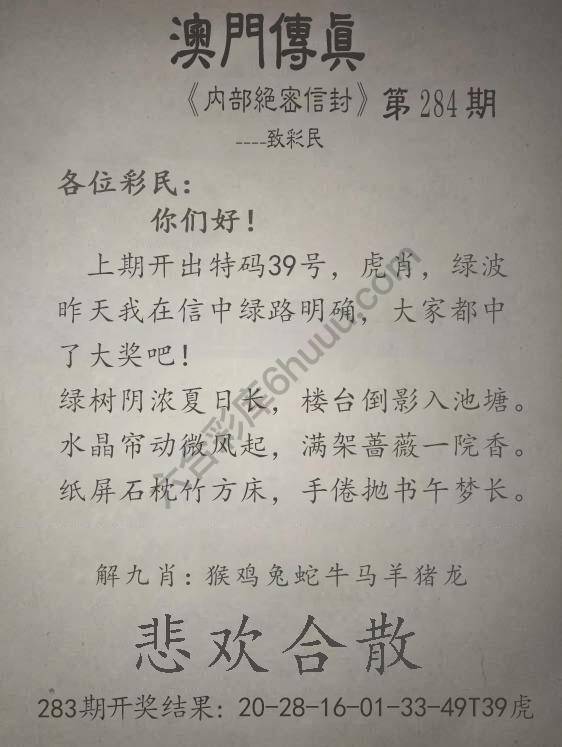 澳門傳真
《内部絕密信封》第284期
----致彩民
各位彩民：
你们好！
上期开出特码39号，虎肖，绿波
昨天我在信中绿路明确，大家都中
了大奖吧！
绿树阴浓夏日长，楼台倒影入池塘。
水晶帘动微风起，满架蔷薇一院香。
纸屏石枕竹方床，手倦抛书午梦长。
六合彩库6huuu.com
解九肖：猴鸡兔蛇牛马羊猪龙
悲欢合散
283期开奖结果：20-28-16-01-33-49T39虎